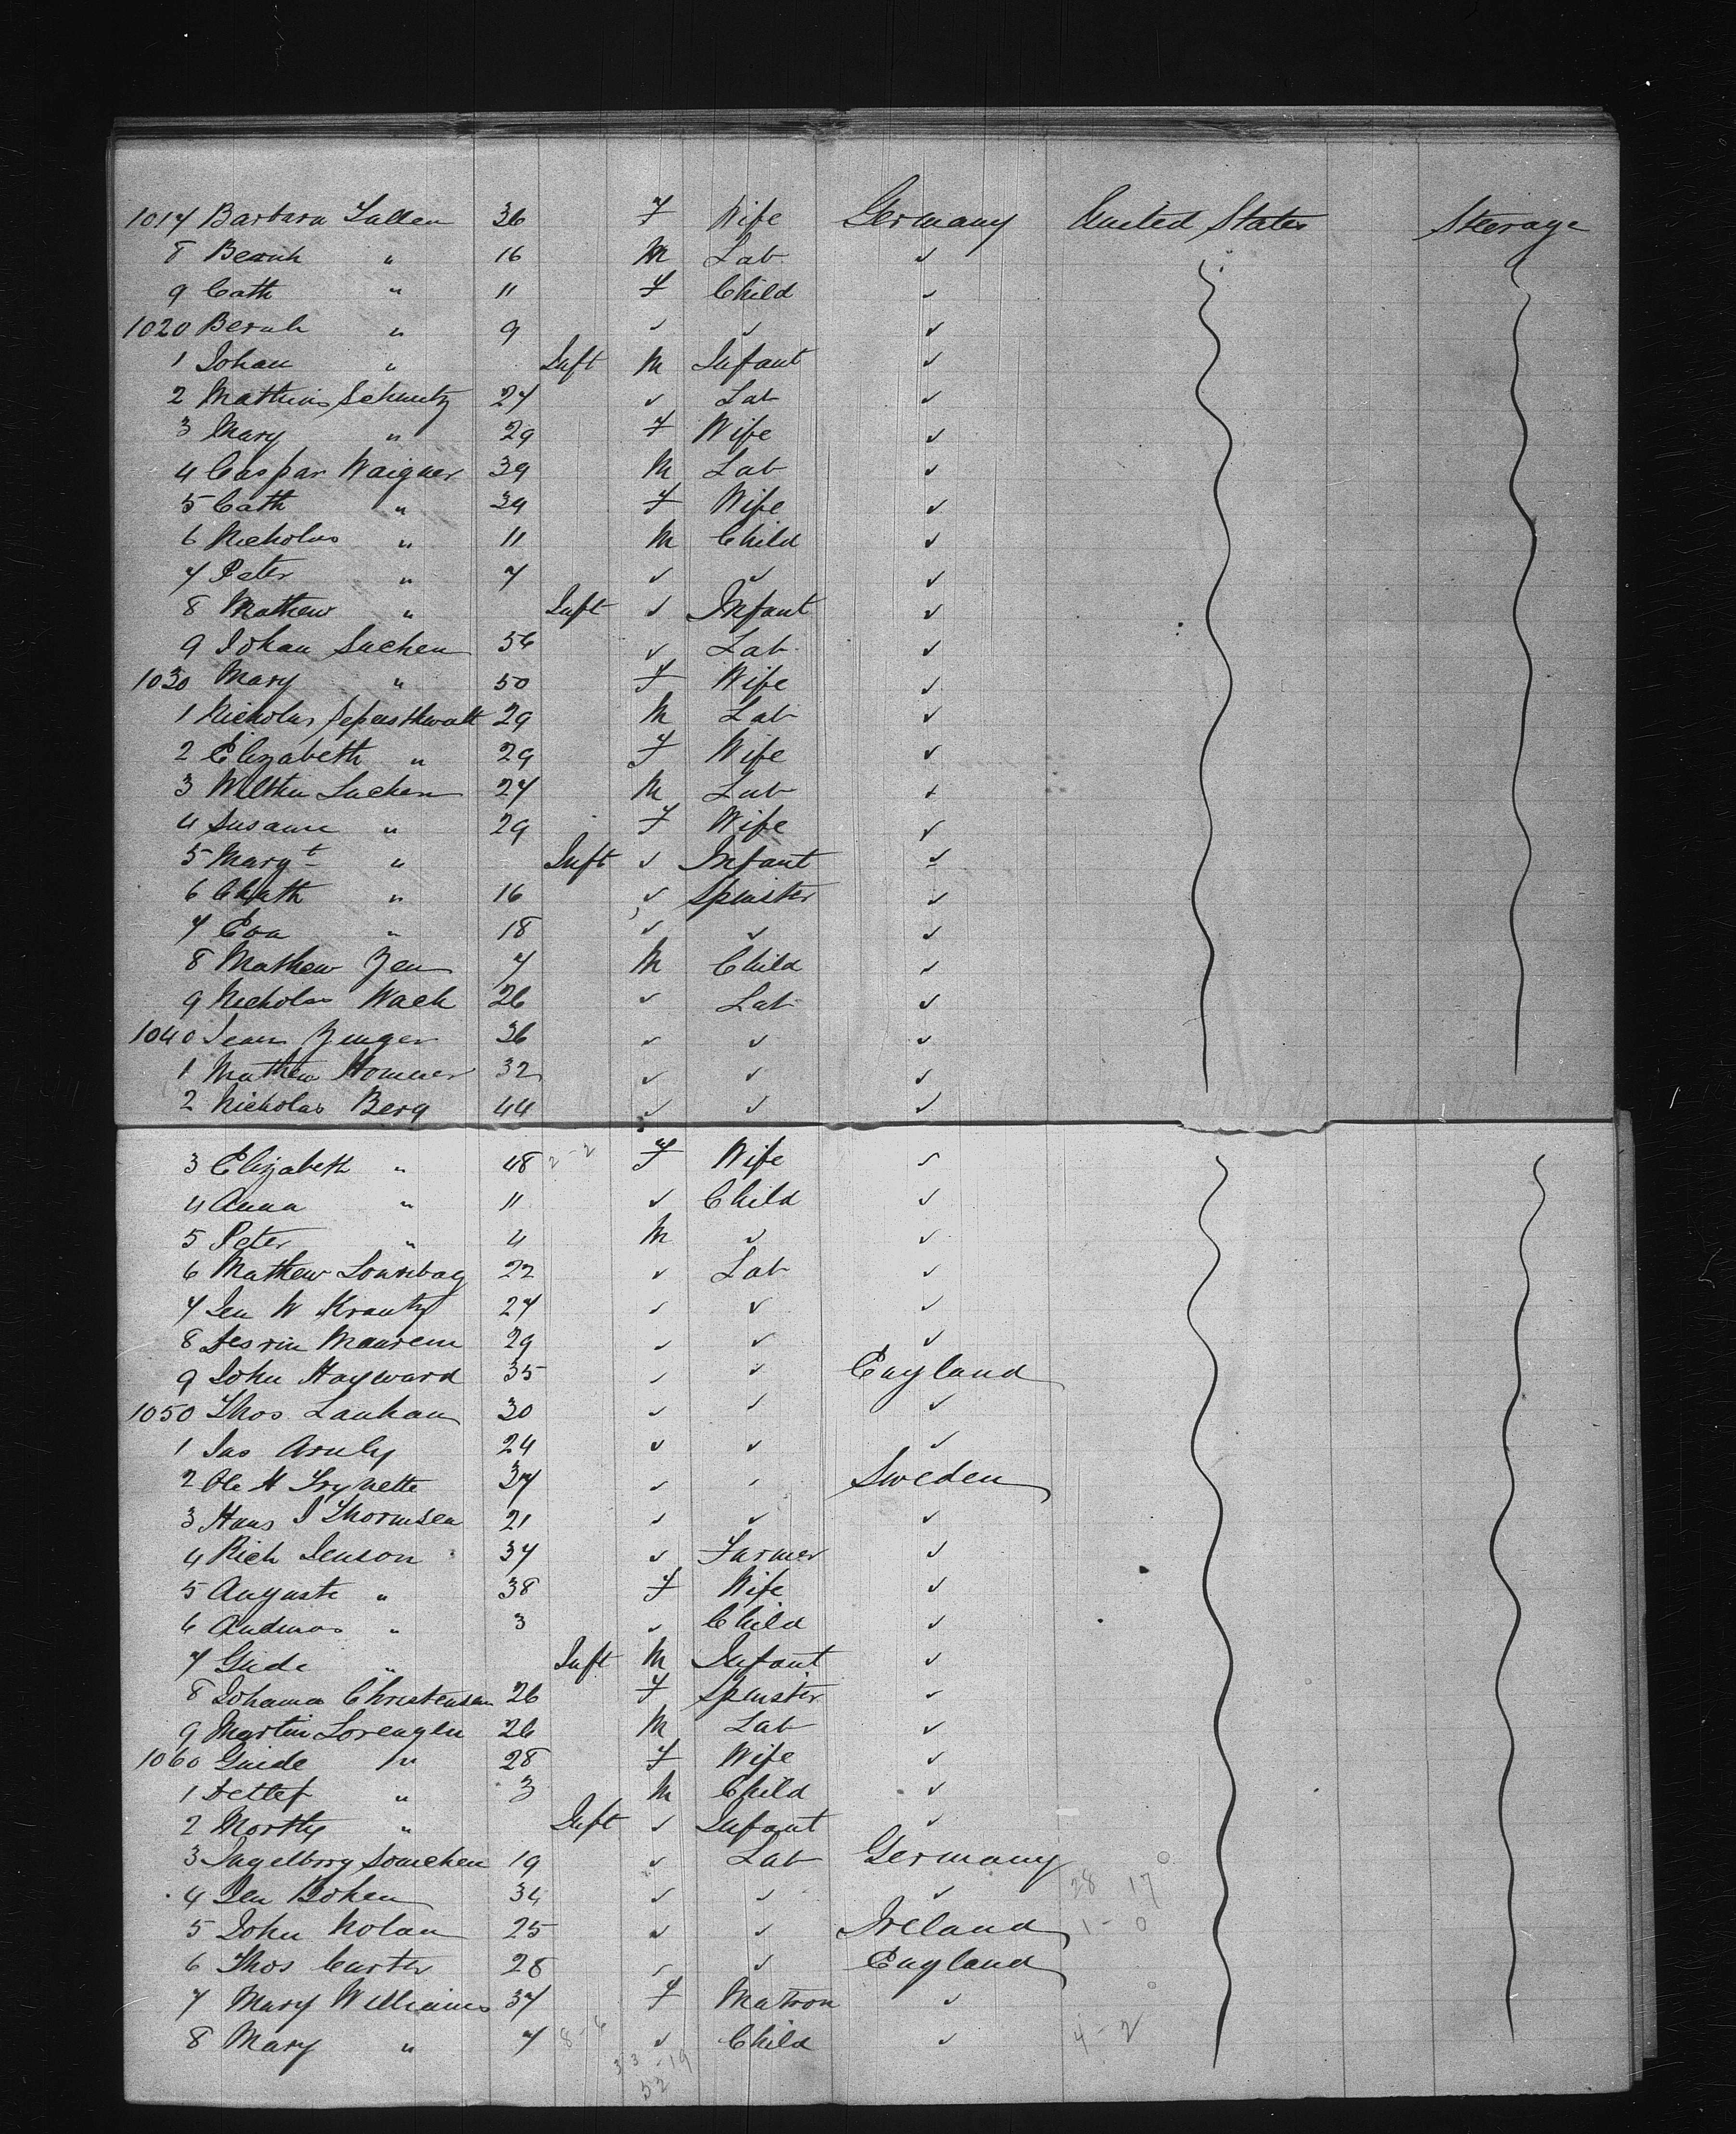 1017 Barbara Lullen 36 F Wife Germany United States Steerage
8 Bernh " 16 M Lab ✓
9 Cath " 11 F Child ✓
1020 Bernh " 9 ✓ ✓ ✓
1 Johan " Inft M Infant ✓
2 Mathias Schmitz 27 ✓ Lab ✓
3 Mary " 29 F Wife ✓
4 Caspar Waigner 39 M Lab ✓
5 Cath " 39 F Wife ✓
6 Nicholas " 11 M Child ✓
7 Peter " 7 ✓ ✓ ✓
8 Mathew " Inft ✓ Infant ✓
9 Johan Suchen 56 ✓ Lab ✓
1030 Mary " 50 F Wife ✓
1 Nicholas 29 M Lab ✓
2 Elizabeth " 29 F Wife ✓
3 Suchen 27 M Lab ✓
4 Susanne " 29 F Wife ✓
5 Margt " Inft ✓ Infant ✓
6 Cath " 16 ✓ Spinster ✓
7 Eva " 18 ✓ ✓ ✓
8 Mathew Zen 7 M Child ✓
9 Nicholas Wack 26 ✓ Lab ✓
1040 Jean Zinger 36 ✓ ✓ ✓
1 Mathew Hommer 32 ✓ ✓ ✓
2 Nicholas Berg 44 ✓ ✓ ✓
3 Elizabeth " 48 2-2 F Wife ✓
4 Anna " 11 ✓ Child ✓
5 Peter " 4 M ✓ ✓
6 Mathew Lonsbag 22 ✓ Lab ✓
7 Jen W Krantz 27 ✓ ✓ ✓
8 Maurem 29 ✓ ✓ ✓
9 John Hayward 35 ✓ ✓ England
1050 Thos Lanham 30 ✓ ✓ ✓
1 Jas Arnly 24 ✓ ✓ ✓
2 Ole H Trynette 37 ✓ ✓ Sweden
3 Hans J Thormsen 21 ✓ ✓ ✓
4 Rich Jenson 37 ✓ Farmer ✓
5 Auguste " 38 F Wife ✓
6 Andreas " 3 ✓ Child ✓
7 Gude " Inft M Infant ✓
8 Johanna Christensen 26 F Spinster ✓
9 Martin Lorenzen 26 M Lab ✓
1060 Guide " 28 F Wife ✓
1 Detlef " 3 M Child ✓
2 Morths " Inft ✓ Infant ✓
3 Ingelborg Sonichen 19 ✓ Lab Germany
4 Jen Bohen 34 ✓ ✓ ✓ 28 17
5 John Nolan 25 ✓ ✓ Ireland 1-0
6 Thos Carter 28 ✓ ✓ England
7 Mary Williams 37 F Matron ✓
8 Mary " 7 8-6 ✓ Child ✓ 4-2
33-19
52